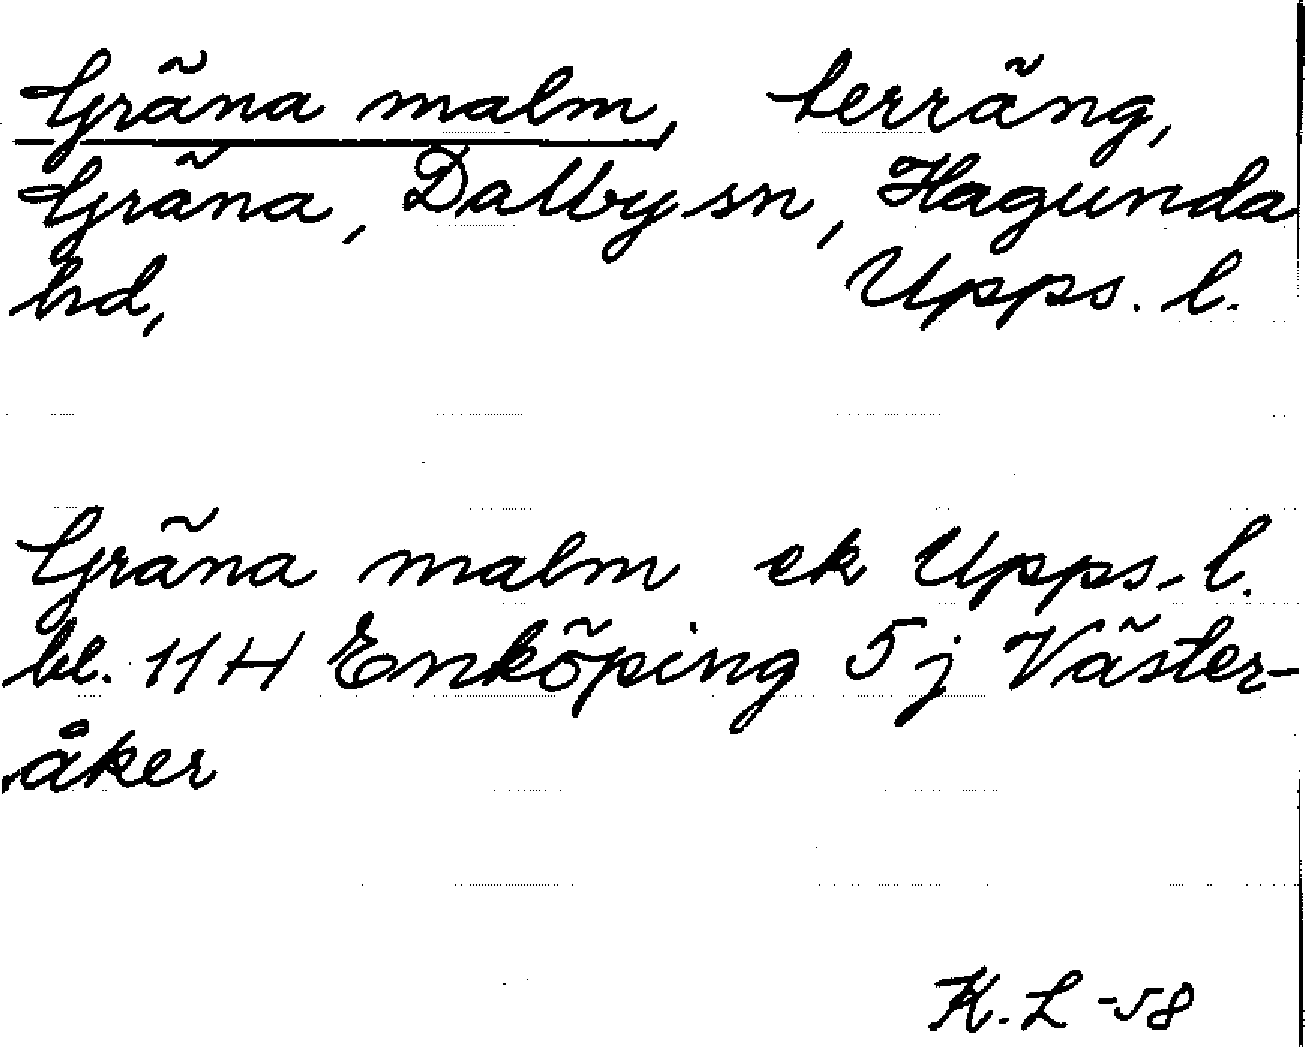 Gräna malm, terräng,
Gräna, Dalby sn, Hagunda
hd, Upps. l.
Gräna malm ek Upps. l.
bl. 11 H Enköping 5 j Väster-
åker
K. L -58